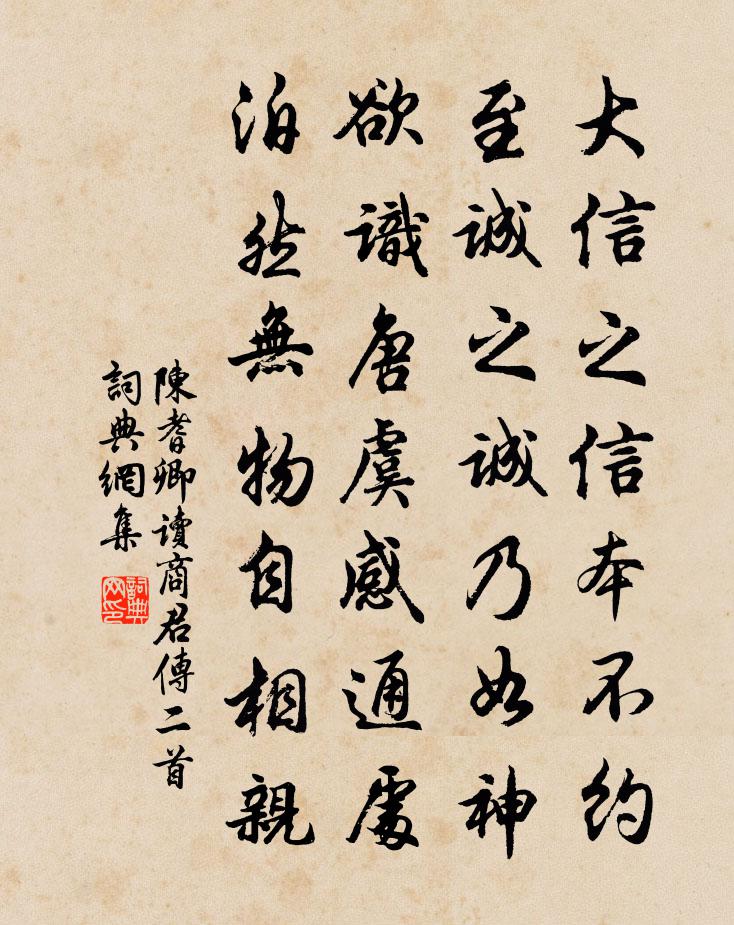 大信之信本不約
至誠之誠乃如神
欲識唐虞感通處
泊然無物自相親
陳耆卿讀商君傳二首
詞典網集
詞典网印